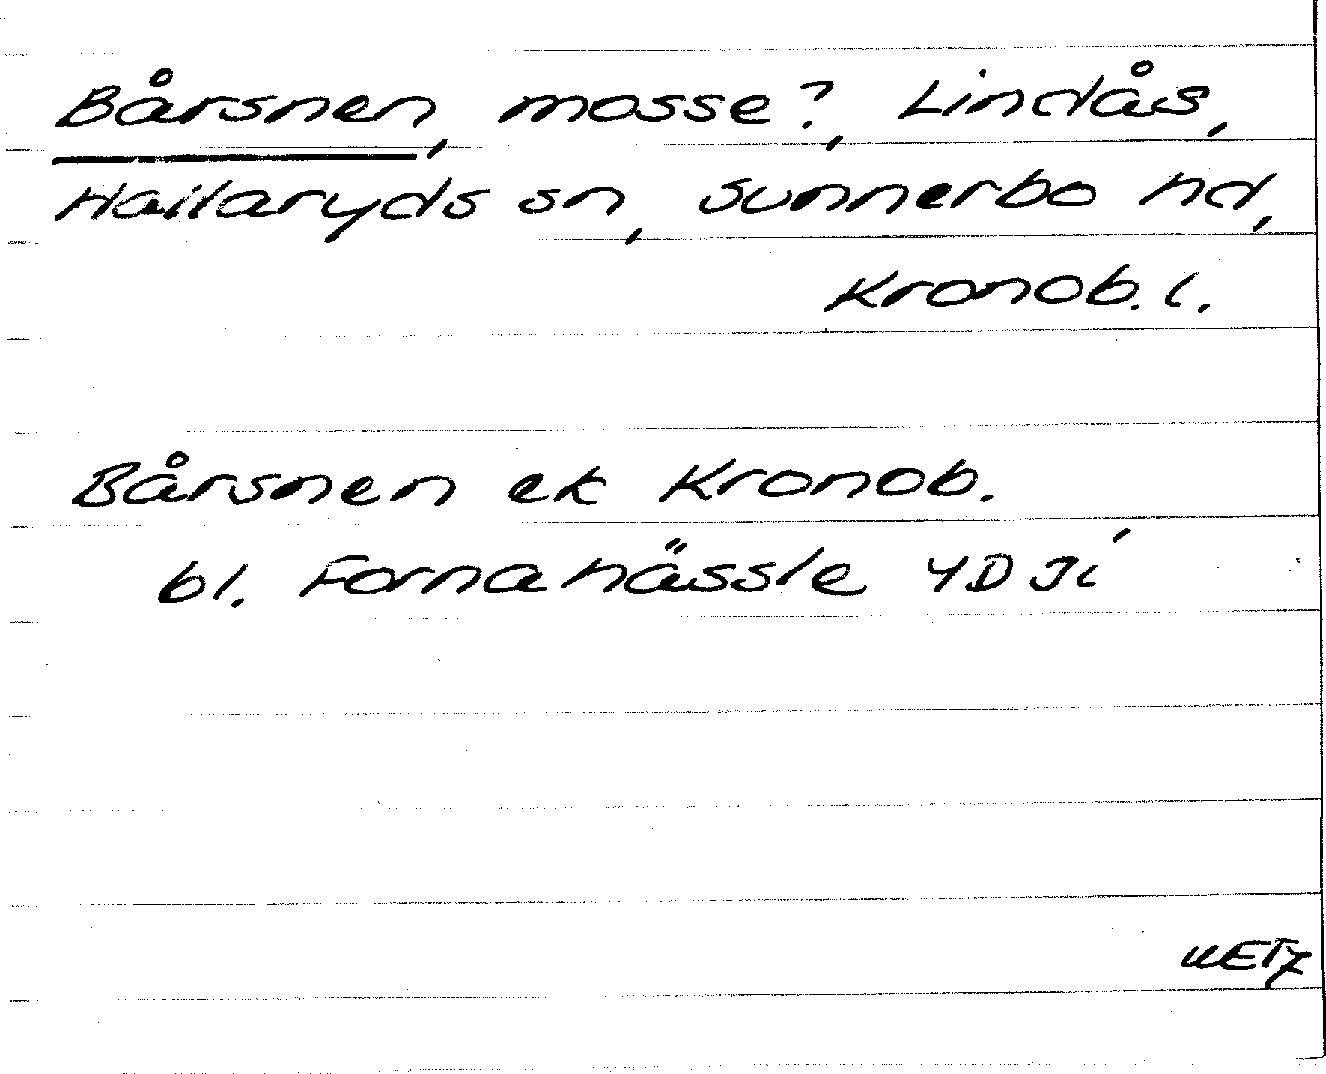 Bårsnen, mosse?, Lindås,
Hallaryds sn, Sunnerbo hd,
Kronob. l.
Bårsnen ek Kronob.
bl. Fornahässle 4D 7i